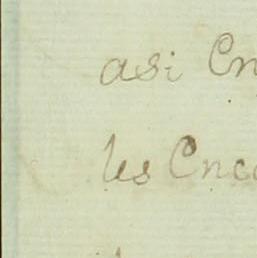 asi En
les Enca